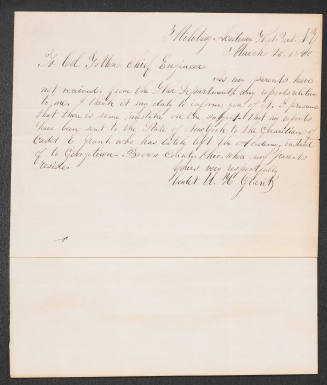 Military Academy West Point N.Y.
March 10, 1840
To Col. Totten Chief Engineer
As my parents have
not received from the War Department any reports relative
to me, I think it my duty to inform you of it. I presume
that there is some mistake on the subject. that my reports
have been sent to the State of New York to the Guardian of
Cadet E Grant who has lately left the Academy, instead
of to Georgetown Brown County Ohio where my parents
reside
Yours very respectfully
Cadet U. H. Grant